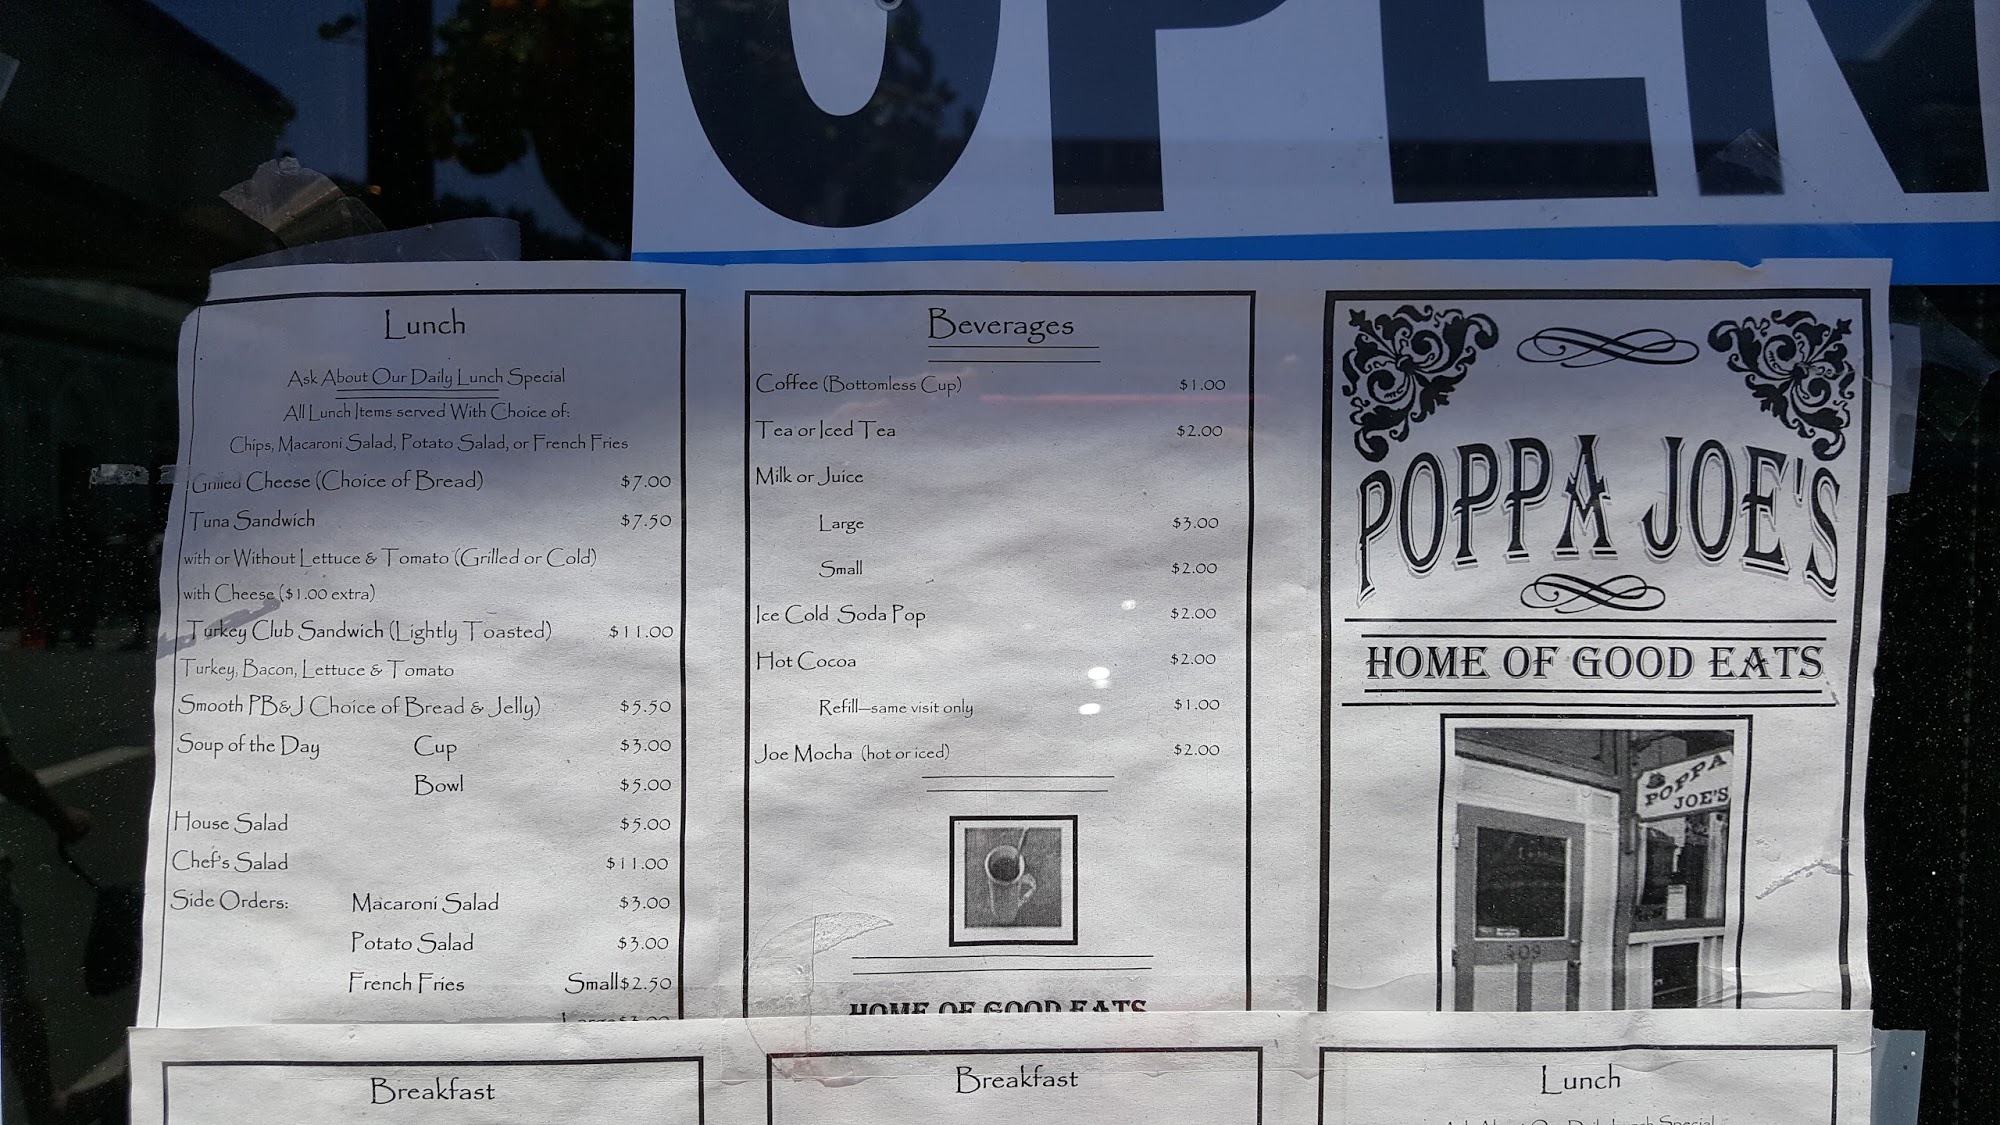 OPEN
Lunch
Ask About Our Daily Lunch Special
All Lunch Items served With Choice of:
Chips, Macaroni Salad, Potato Salad, or French Fries
Grilled Cheese (Choice of Bread) $7.00
Tuna Sandwich $7.50
with or Without Lettuce & Tomato (Grilled or Cold)
with Cheese ($1.00 extra)
Turkey Club Sandwich (Lightly Toasted) $11.00
Turkey, Bacon, Lettuce & Tomato
Smooth PB&J Choice of Bread & Jelly) $5.50
Soup of the Day Cup $3.00
Bowl $5.00
House Salad $5.00
Chef's Salad $11.00
Side Orders: Macaroni Salad $3.00
Potato Salad $3.00
French Fries Small $2.50
Large $3.00
Beverages
Coffee (Bottomless Cup) $1.00
Tea or Iced Tea $2.00
Milk or Juice
Large $3.00
Small $2.00
Ice Cold Soda Pop $2.00
Hot Cocoa $2.00
Refill—same visit only $1.00
Joe Mocha (hot or iced) $2.00
HOME OF GOOD EATS
POPPA JOE'S
HOME OF GOOD EATS
POPPA
JOE'S
509
Breakfast
Breakfast
Lunch
Ask About Our Daily Lunch Special